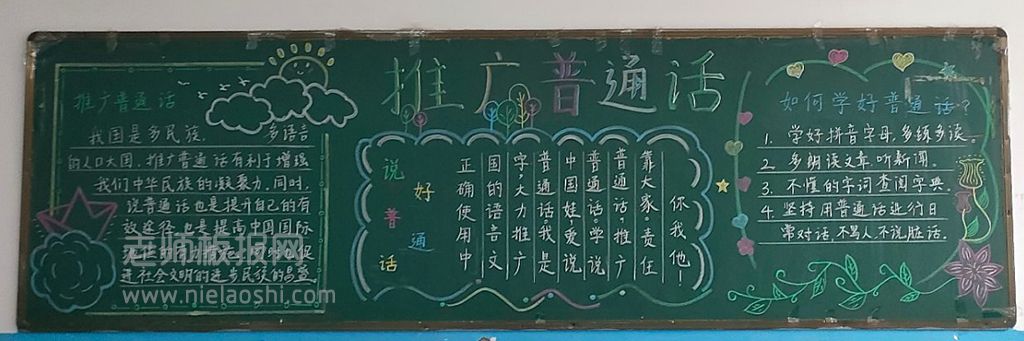 推广普通话
推广普通话
我国是多民族、多语言
的人口大国,推广普通话有利于增强
我们中华民族的凝聚力。同时,
说普通话也是提升自己的有
效途径,也是提高中国国际
进社会文明的进步民族的昌盛
说好普通话
正确使用中
国的语言文
字,大力推广
普通话我是
中国娃爱说
普通话,学说
普通话,推广
靠大家,责任
你我他!
如何学好普通话?
1. 学好拼音字母,多练多读。
2. 多朗读文章,听新闻。
3. 不懂的字词查阅字典。
4. 坚持用普通话进行日
常对话,不骂人不说脏话。
老师板报网
www.nielaoshi.com